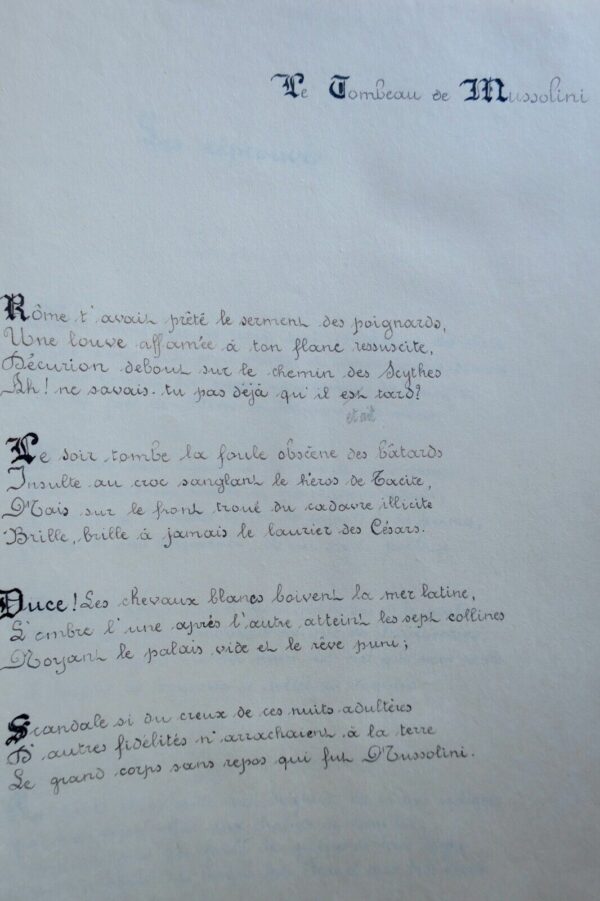 Le Tombeau de Mussolini
Rome t'avait prêté le serment des poignards,
Une louve affamée à ton flanc ressuscite,
Décurion debout sur le chemin des Scythes
Ah! ne savais-tu pas déjà qu'il est tard?
etait
Le soir tombe la foule obscène des bâtards
Insulte au croc sanglant le héros de Tacite,
Mais sur le front troué du cadavre illicite
Brille, brille à jamais le laurier des Césars.
Duce! Les chevaux blancs boivent la mer latine,
L'ombre l'une après l'autre atteint les sept collines
Noyant le palais vide et le rêve puni;
Scandale si du creux de ces nuits adultères
D'autres fidélités n'arrachaient à la terre
Le grand corps sans repos qui fut Mussolini.